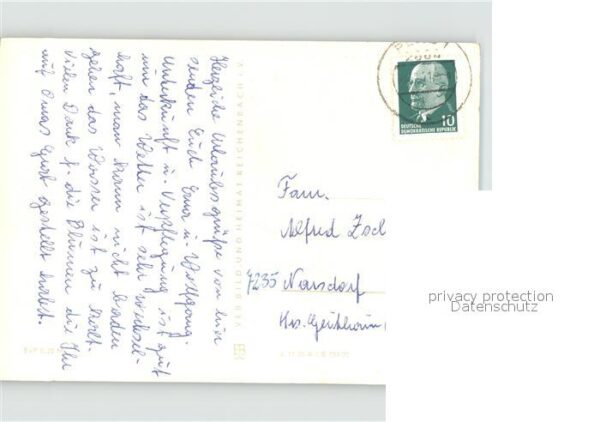 Herzliche Urlaubsgrüße von hier
senden Euch Erna u. Wolfgang.
Unterkunft u. Verpflegung ist gut
nur das Wetter ist sehr wechsel-
haft, man kann nicht baden
gehen das Wasser ist zu kalt.
Vielen Dank f. die Blumen die Ihr
auf Omas Gruft gestellt habet.
DEUTSCHE
DEMOKRATISCHE REPUBLIK
10
Fam.
Alfred
7235 Narsdorf
Krs. Geithain
privacy protection
Datenschutz